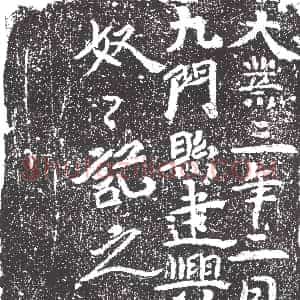 大業三年二月
九門縣建興
奴〻記之